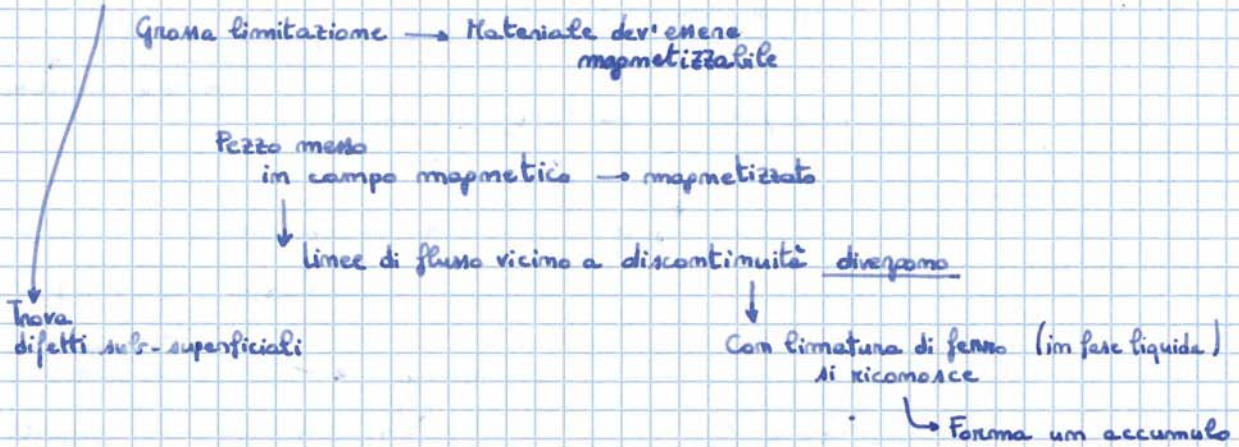 Grossa limitazione → Materiale dev'essere
magnetizzabile
Pezzo messo
in campo magnetico → magnetizzato
↓
Linee di flusso vicino a discontinuità divergono
↓
Trova
difetti sub-superficiali
Con limatura di ferro (in fase liquida)
si riconosce
↳ Forma un accumulo